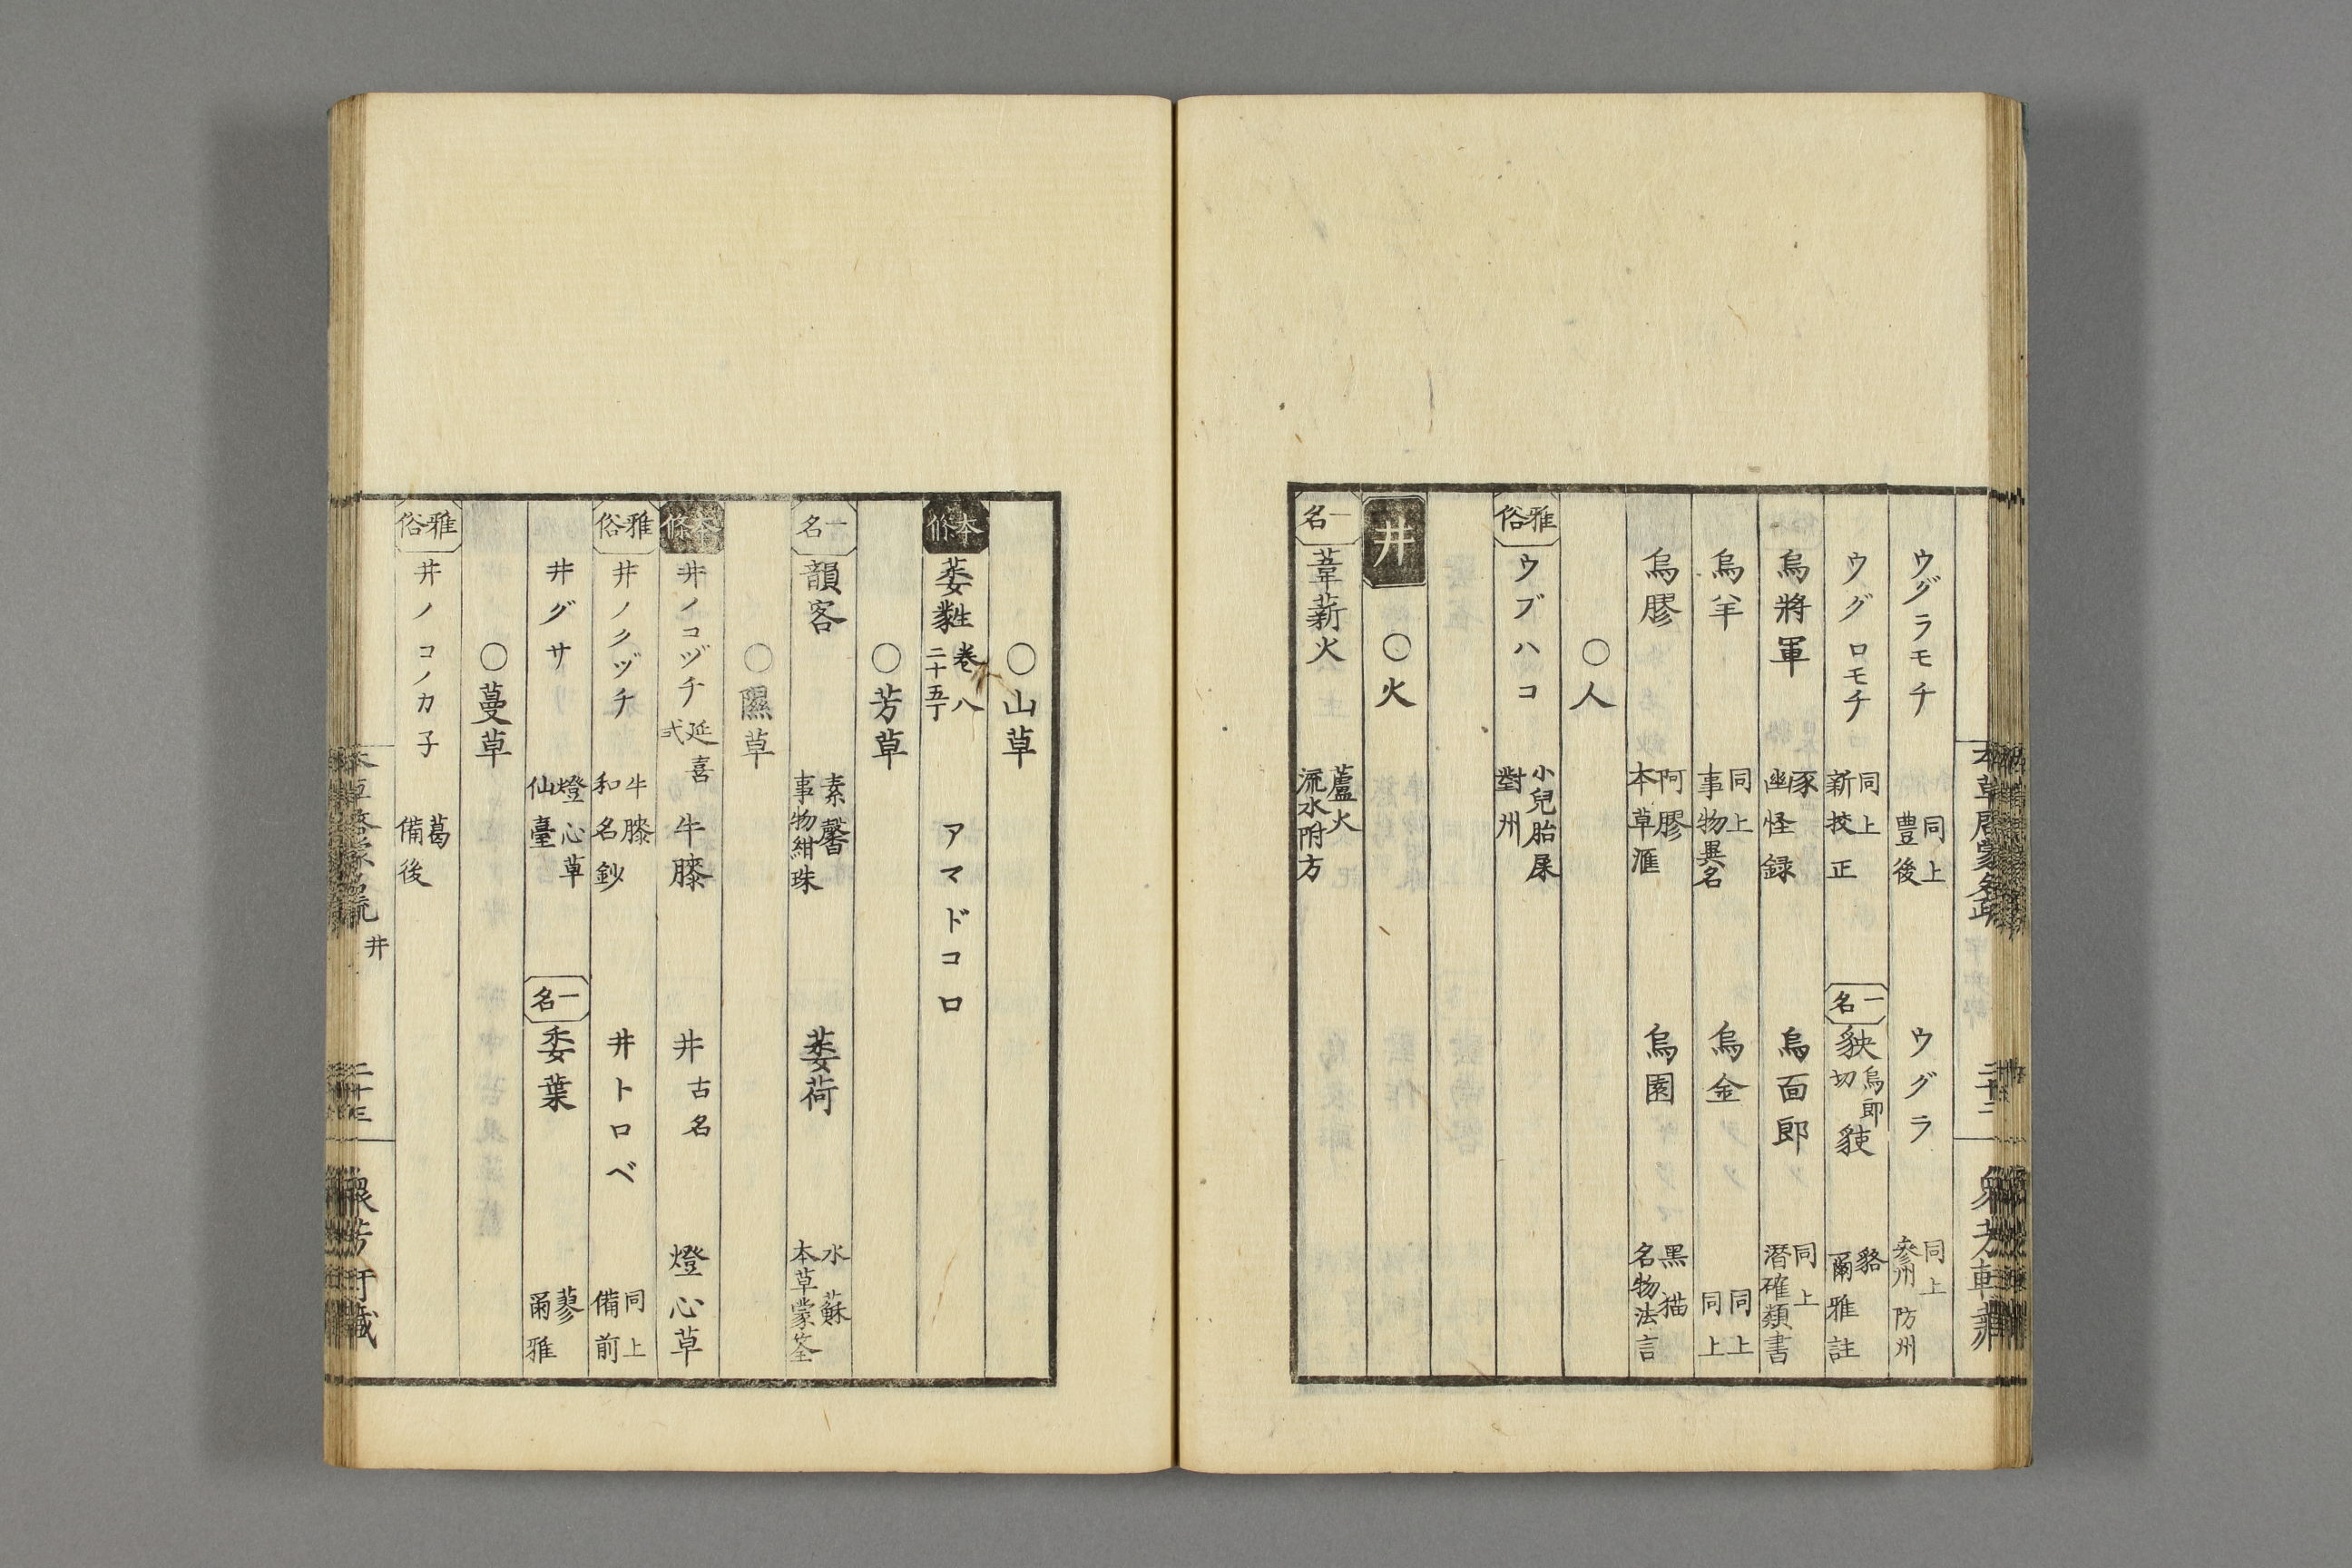 ウグラモチ 同上 豊後 ウグラ 同上 參州 防州
ウグロモチ 同上 新挍正 一名 䝟 烏郎切 䝘 貉 爾雅註
烏將軍 豕 幽怪録 烏面郎 同上 潛確類書
烏羊 同上 事物異名 烏金 同上 同上
烏膠 阿膠 本草滙 烏園 黑猫 名物法言
〇人
雅俗 ウブハコ 小兒胎屎 對州
井
〇火
一名 葦薪火 蘆火 流水附方
〇山草
本條 萎蕤 卷八 二十五丁 アマドコロ
〇芳草
一名 韻客 素馨 事物紺珠 萎荷 水蘇 本草蒙筌
〇隰草
本條 井ノコヅチ 延喜式 牛膝 井 古名 燈心草
雅俗 井ノクヅチ 牛膝 和名鈔 井トロベ 同上 備前
井グサ 燈心草 仙臺 一名 委葉 蓼 爾雅
〇蔓草
雅俗 井ノコノカ子 葛 備後
井
二十三